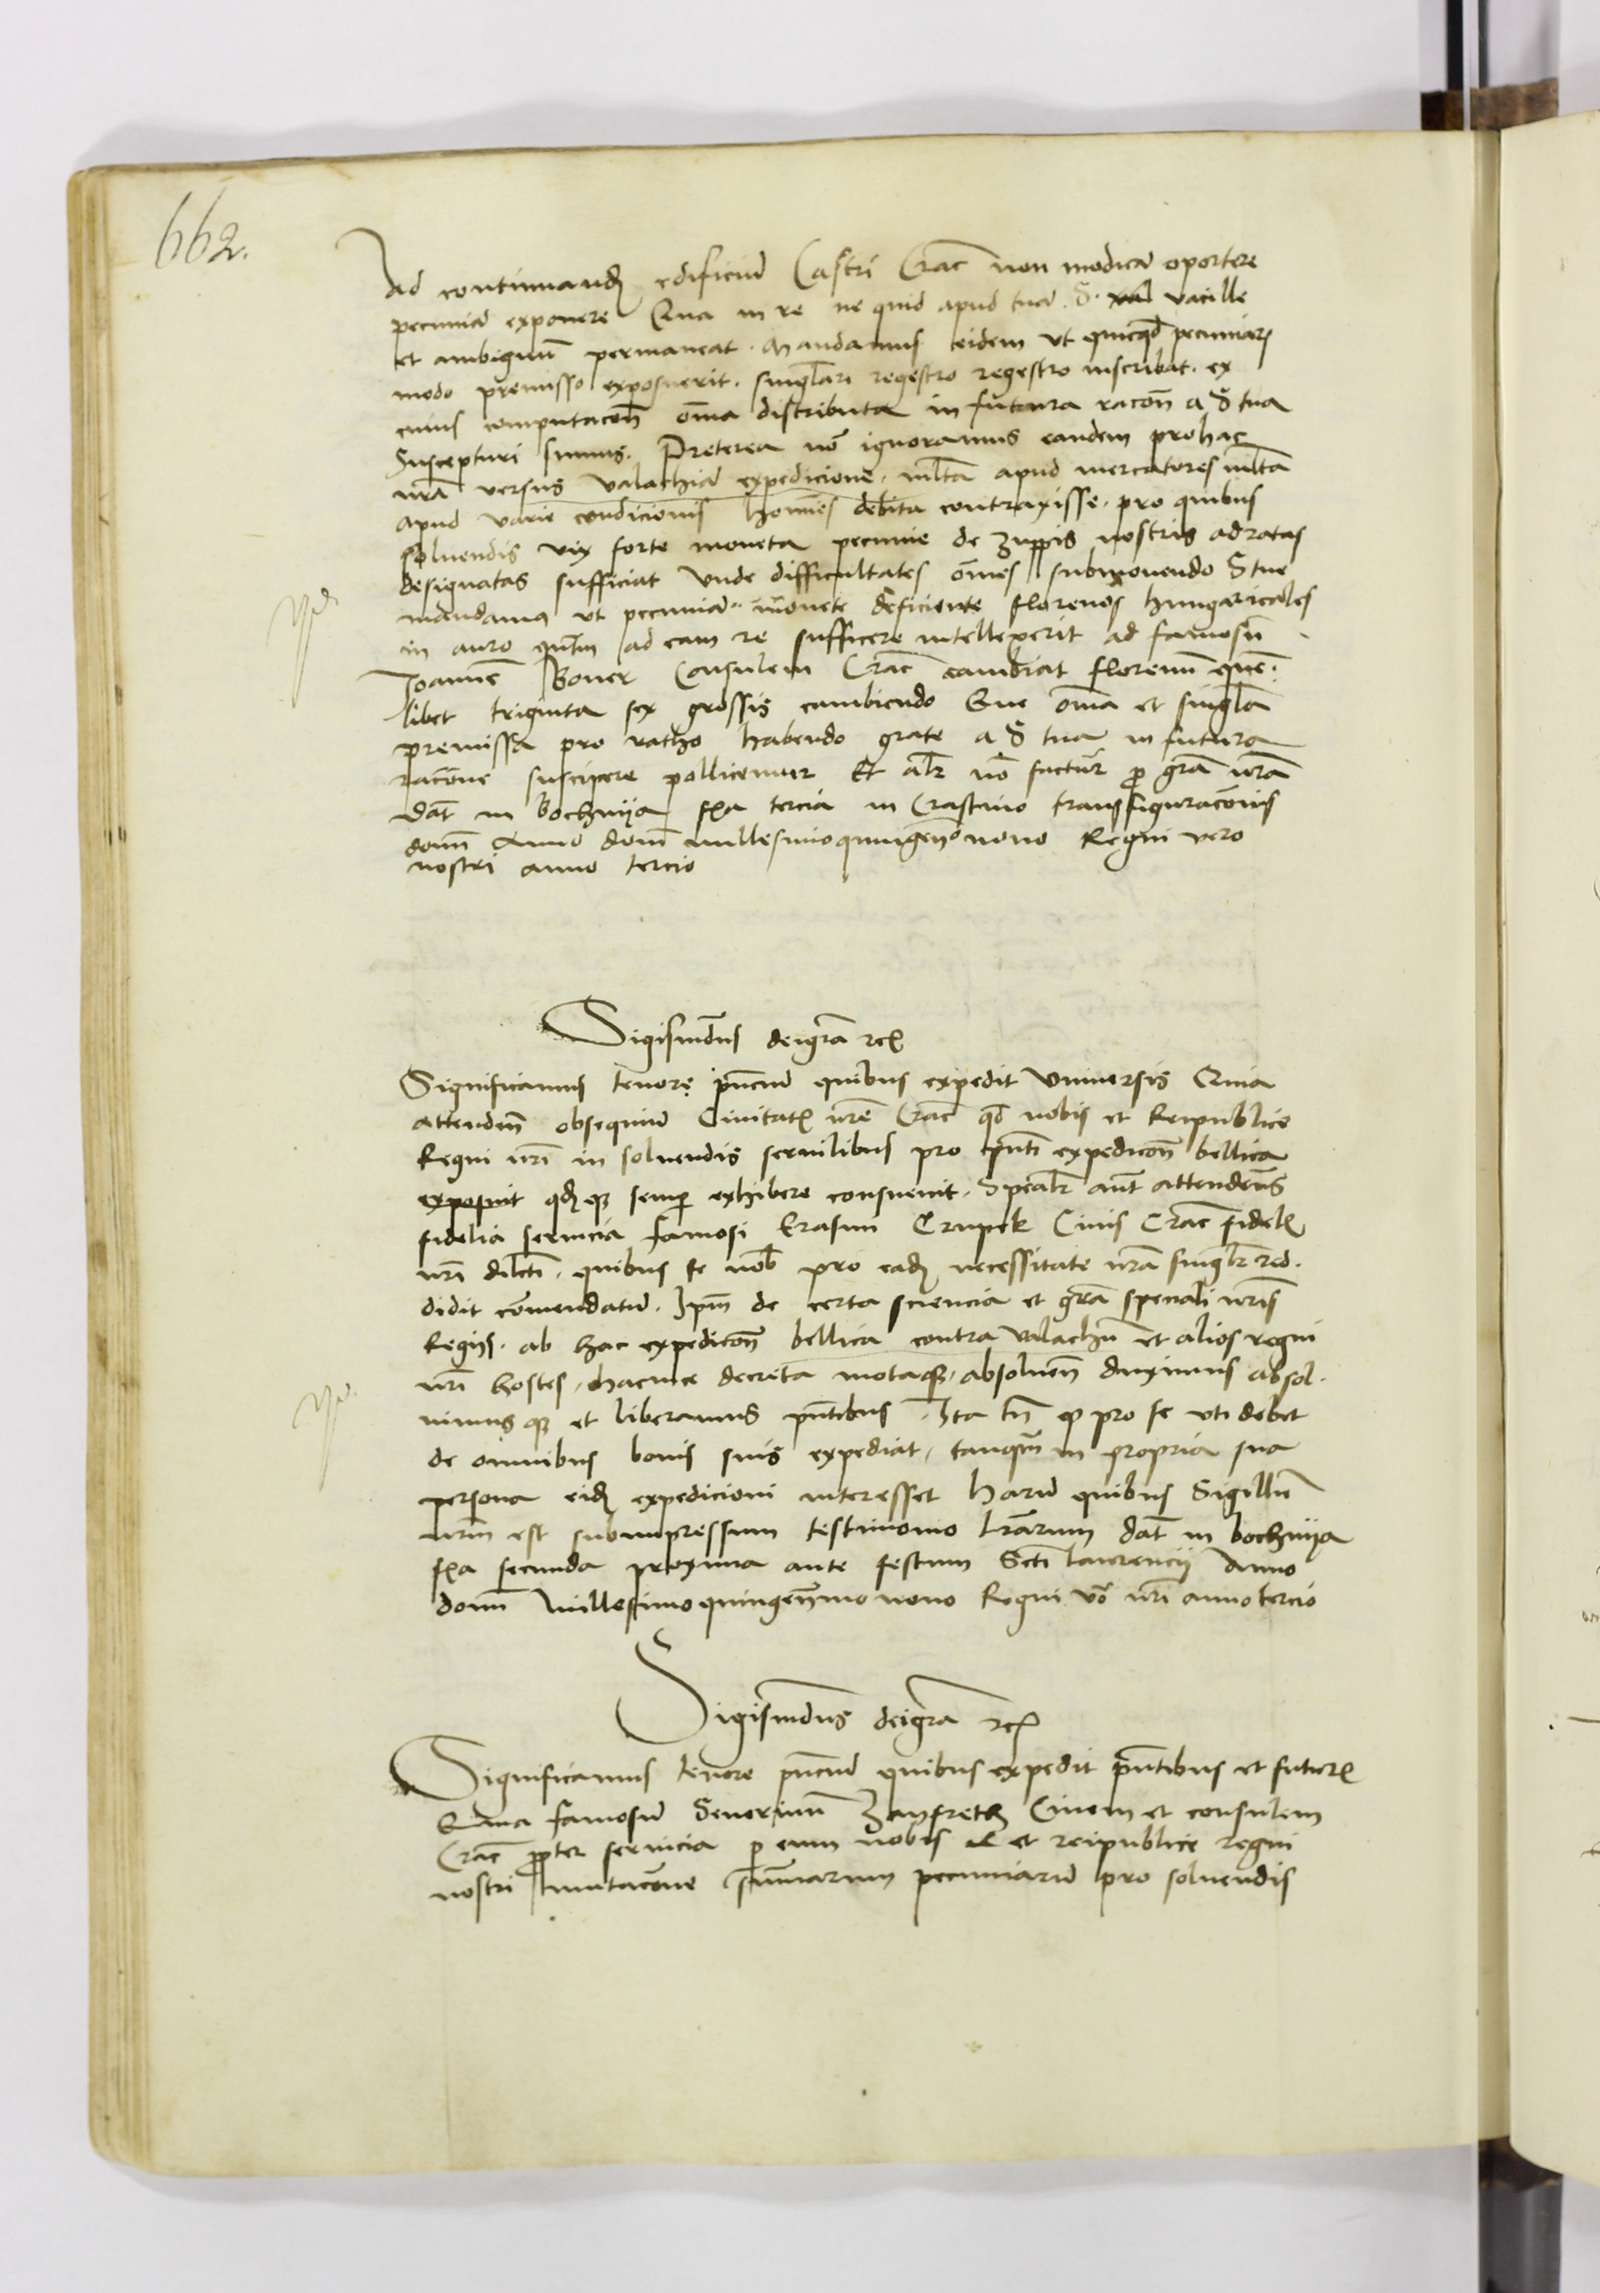 662.
Ad continuand edificiu Castri Crac non modica oportere
pecunia exponere Qua in re ne quid apud tua S. vacille
et ambiguu permaneat. Mandamus eidem ut quicqd pecuniar
modo premisso exposuerit. singlari regestro regestro inscribat. ex
cuius computacoe oma distributa in futura racon a S tua
suscepturi sumus. Preterea no ignoramus eandem pro hac
nra versus valachia expedicione. mlta apud mercatores mlta
apud varie condicionis homies debita contraxisse. pro quibus
solvendis vix forte moneta pecunie de zuppis nostris ad ratas
designatas sufficiat Unde difficultates omes submovendo S tue
mandamus ut pecunia monete deficiente florenos hungaricales
in auro qutm ad eam re sufficere intellexerit ad famosu
Joanne Boner Consulem Crac cambiat florenum quem
libet triginta sex grossis cambiendo Que oma et singla
premissa pro ratho habendo grate a S tua in futura
racone suscipere pollicemur Et alr no factur p gra nra
Dat in bochnija fia tercia in Crastino transfiguraconis
domi Anno domi millesimo quingeno nono Regni vero
nostri anno tercio
Sigismdus dei gra rex
Significamus tenore pncium quibus expedit Universis Quia
attenden obsequium Civitatis nre Crac qd nobis et Reipublice
Regni nri in solvendis servilibus pro pnti expedicon bellica
semp exhibere consuevit. Specialr aut attendens
fidelia servicia famosi Erasmi Crupek Civis Crac fidelis
nri dilcti. quibus se nob pro ead necessitate nra singlr red
didit comendatum. Ipm de certa sciencia et gra speciali nris
Regijs. ab hac expedicon bellica contra valachum et alios regni
nri hostes, hacvice decreta motaque, absolven duximus absol
vimusque et liberamus pntibus. Ita tn q pro se uti debet
de omnibus bonis suis expediat, tanqm in propria sua
persona eid expedicioni interesset Harum quibus Sigillum
nrm est subimpressum testimonio lrarum dat in bochnija
fia secunda proxima ante festum Scti laurencij Anno
domi Millesimo quingenmo nono Regni vo nri anno tercio
Sigismdus dei gra rex
Significamus tenore pncium quibus expedit pntibus et futuris
Quia famosum Severinum Civem et consulem
Crac ppter servicia p eum nobis et reipublice regni
nostri mutacone summarum pecuniarum pro solvendis